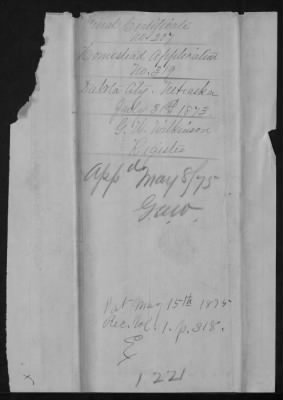 Final Certificate
No. 207
Homestead Application
No. 319
Dakota City, Nebraska
July 31st 1873
G. W. Wilkinson
Register
App'd May 8/75
G.W.W.
Pat. May 15th 1875
Rec. Vol. 1. p. 318.
E
1221
x